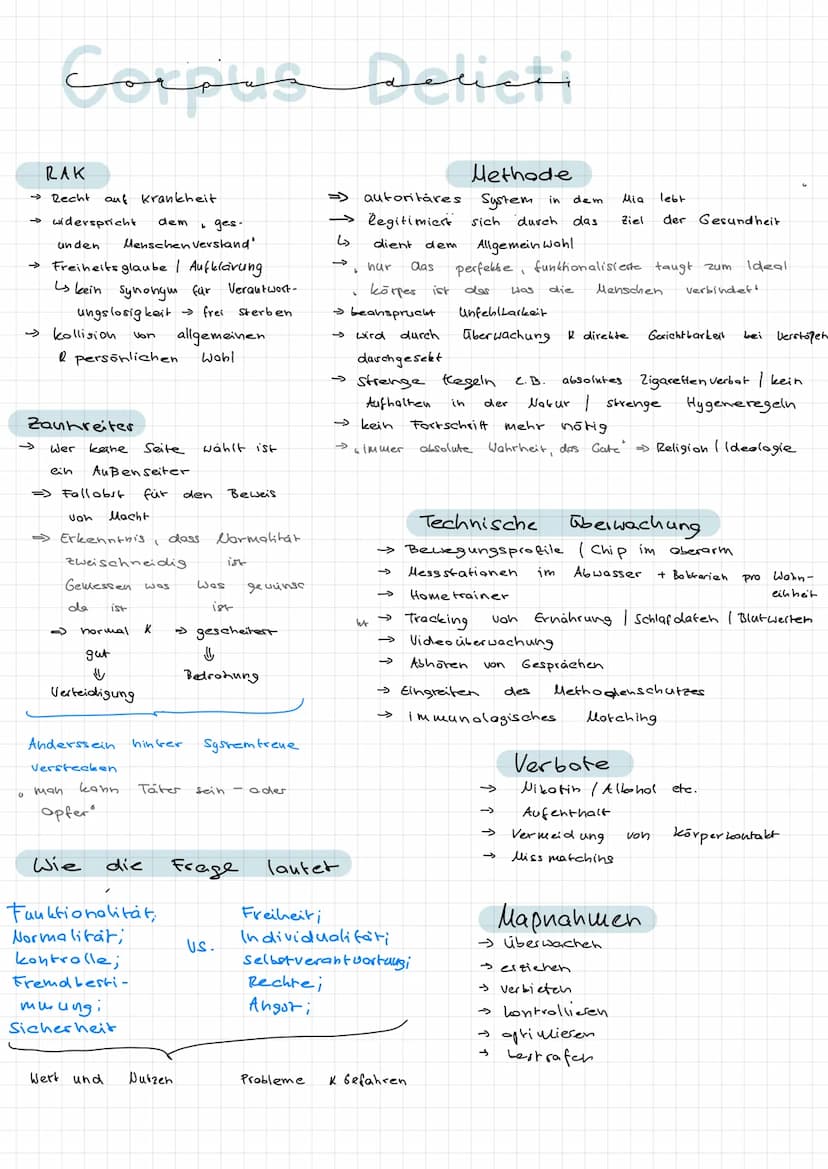 Corpus Delicti
Corpus delicti
RAK
→ Recht auf Krankheit
→ widerspricht dem „ges-
unden Menschenverstand"
→ Freiheitsglaube / Aufklärung
↳ kein Synonym für Verantwort-
ungslosigkeit → frei sterben
→ kollision von allgemeinen
& persönlichen Wohl
Zaunreiter
→ Wer keine Seite wählt ist
ein Außenseiter
⇒ Fallobst für den Beweis
von Macht
⇒ Erkenntnis, dass Normalität
zweischneidig ist
Gemessen was Was gewünsc
da ist ist
⇒ normal & ⇒ gescheitert
gut ⇓
⇓ Bedrohung
Verteidigung
Anderssein hinter Systemtreue
verstecken
„man kann Täter sein – oder
Opfer"
Wie die Frage lautet
Funktionalität;
Normalität;
kontrolle;
Fremdbesti-
mmung;
Sicherheit
vs.
Freiheit;
Individualität;
Selbstverantwortung;
Rechte;
Angst;
Wert und Nutzen Probleme & Gefahren
Methode
⇒ autoritäres System in dem Mia lebt
→ legitimiert sich durch das Ziel der Gesundheit
↳ dient dem Allgemeinwohl
→ „nur das perfekte, funktionalisierte taugt zum Ideal
„körper ist das was die Menschen verbindet"
→ beansprucht Unfehlbarkeit
→ wird durch Überwachung & direkte Gerichtbarkeit bei Verstößen
durchgesetzt
→ Strenge Regeln z.B. absolutes Zigarettenverbot / kein
Aufhalten in der Natur / strenge Hygeneregeln
→ kein Fortschrift mehr nötig
→ „Immer absolute Wahrheit, das Gute" ⇒ Religion / Ideologie
Technische Überwachung
→ Bewegungsprofile / Chip im oberarm
→ Messstationen im Abwasser + Baktrarien pro Wohn-
einheit
→ Hometrainer
→ Tracking von Ernährung / Schlafdaten / Blutwerten
→ Videoüberwachung
→ Abhören von Gesprächen
→ Eingreifen des Methodenschutzes
→ immunologisches Matching
Verbote
→ Nikotin / Alkohol etc.
→ Aufenthalt
→ Vermeidung von körperkontakt
→ Missmatching
Maßnahmen
→ überwachen
→ erziehen
→ verbieten
→ kontrollieren
→ optimieren
→ bestrafen